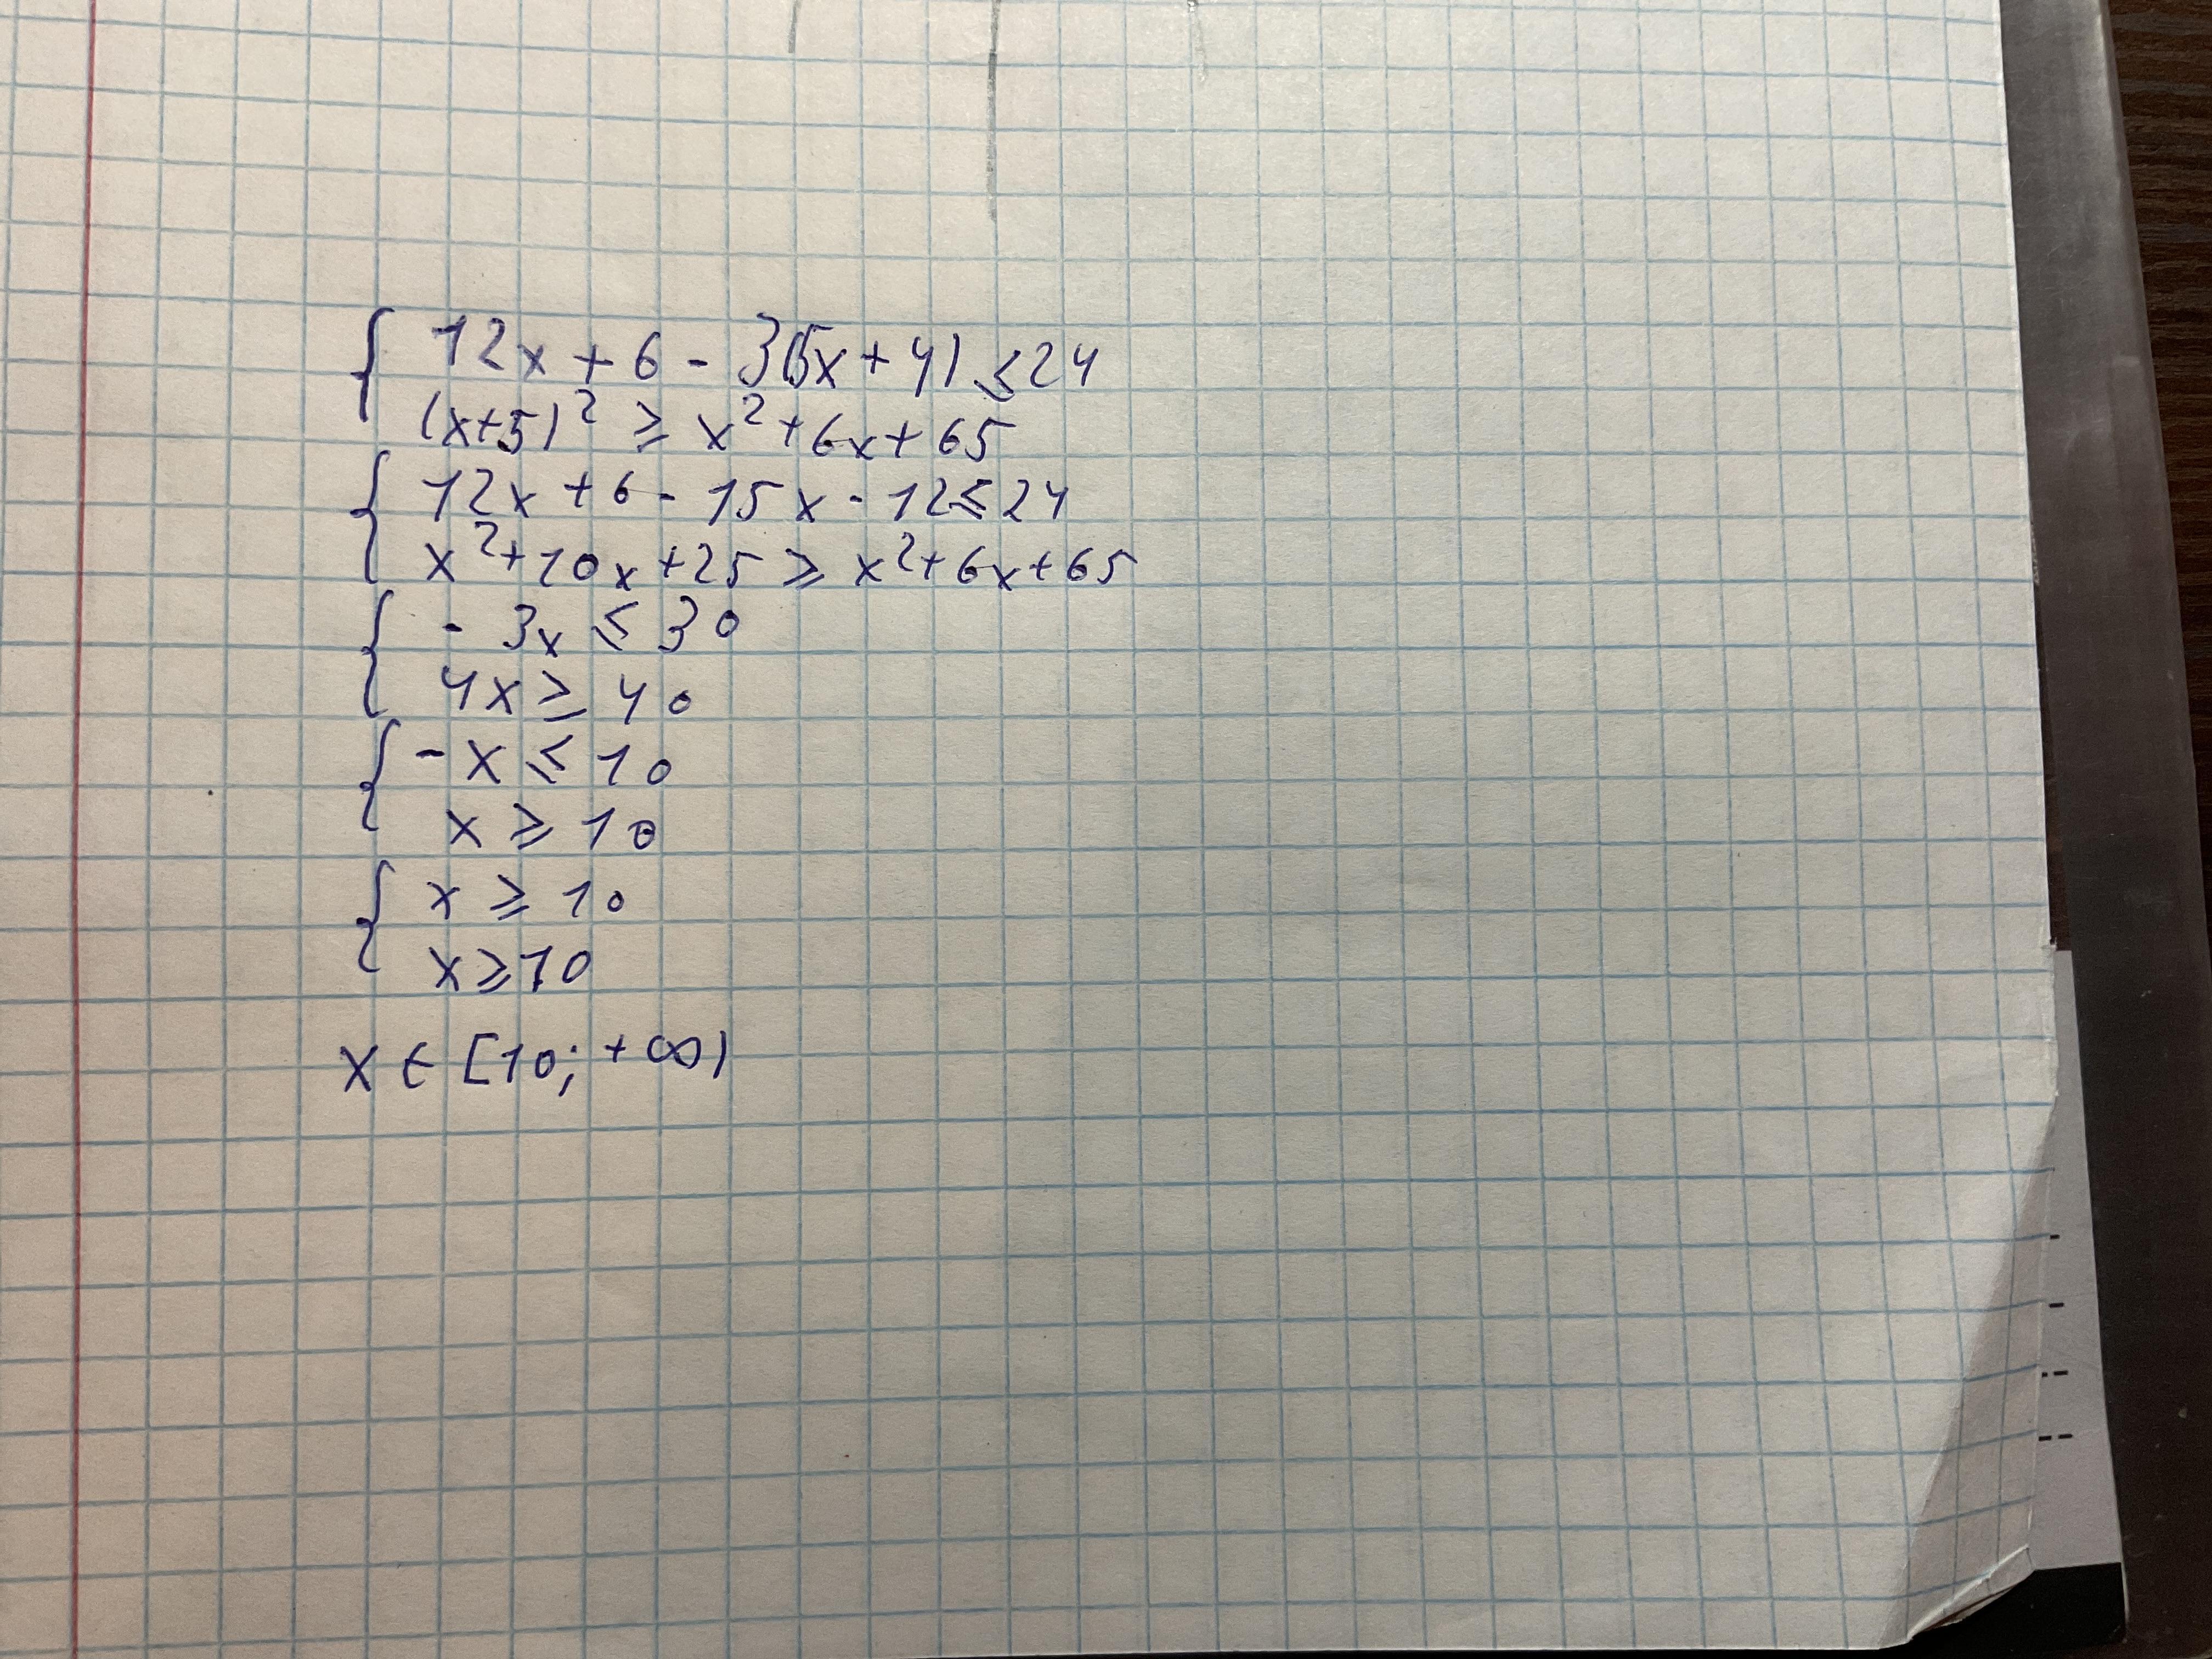 { 12x + 6 - 3(5x + 4) ≤ 24
(x+5)² ≥ x² + 6x + 65
{ 12x + 6 - 15x - 12 ≤ 24
x² + 10x + 25 ≥ x² + 6x + 65
{ - 3x ≤ 30
4x ≥ 40
{ - x ≤ 10
x ≥ 10
{ x ≥ 10
x ≥ 10
x ∈ [10; +∞)